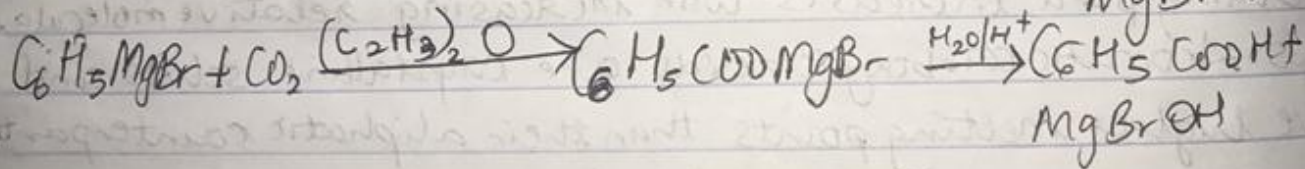 C₆H₅MgBr + CO₂ (C₂H₃)₂O → C₆H₅COOMgBr H₂O/H⁺ → C₆H₅COOH +
MgBrOH